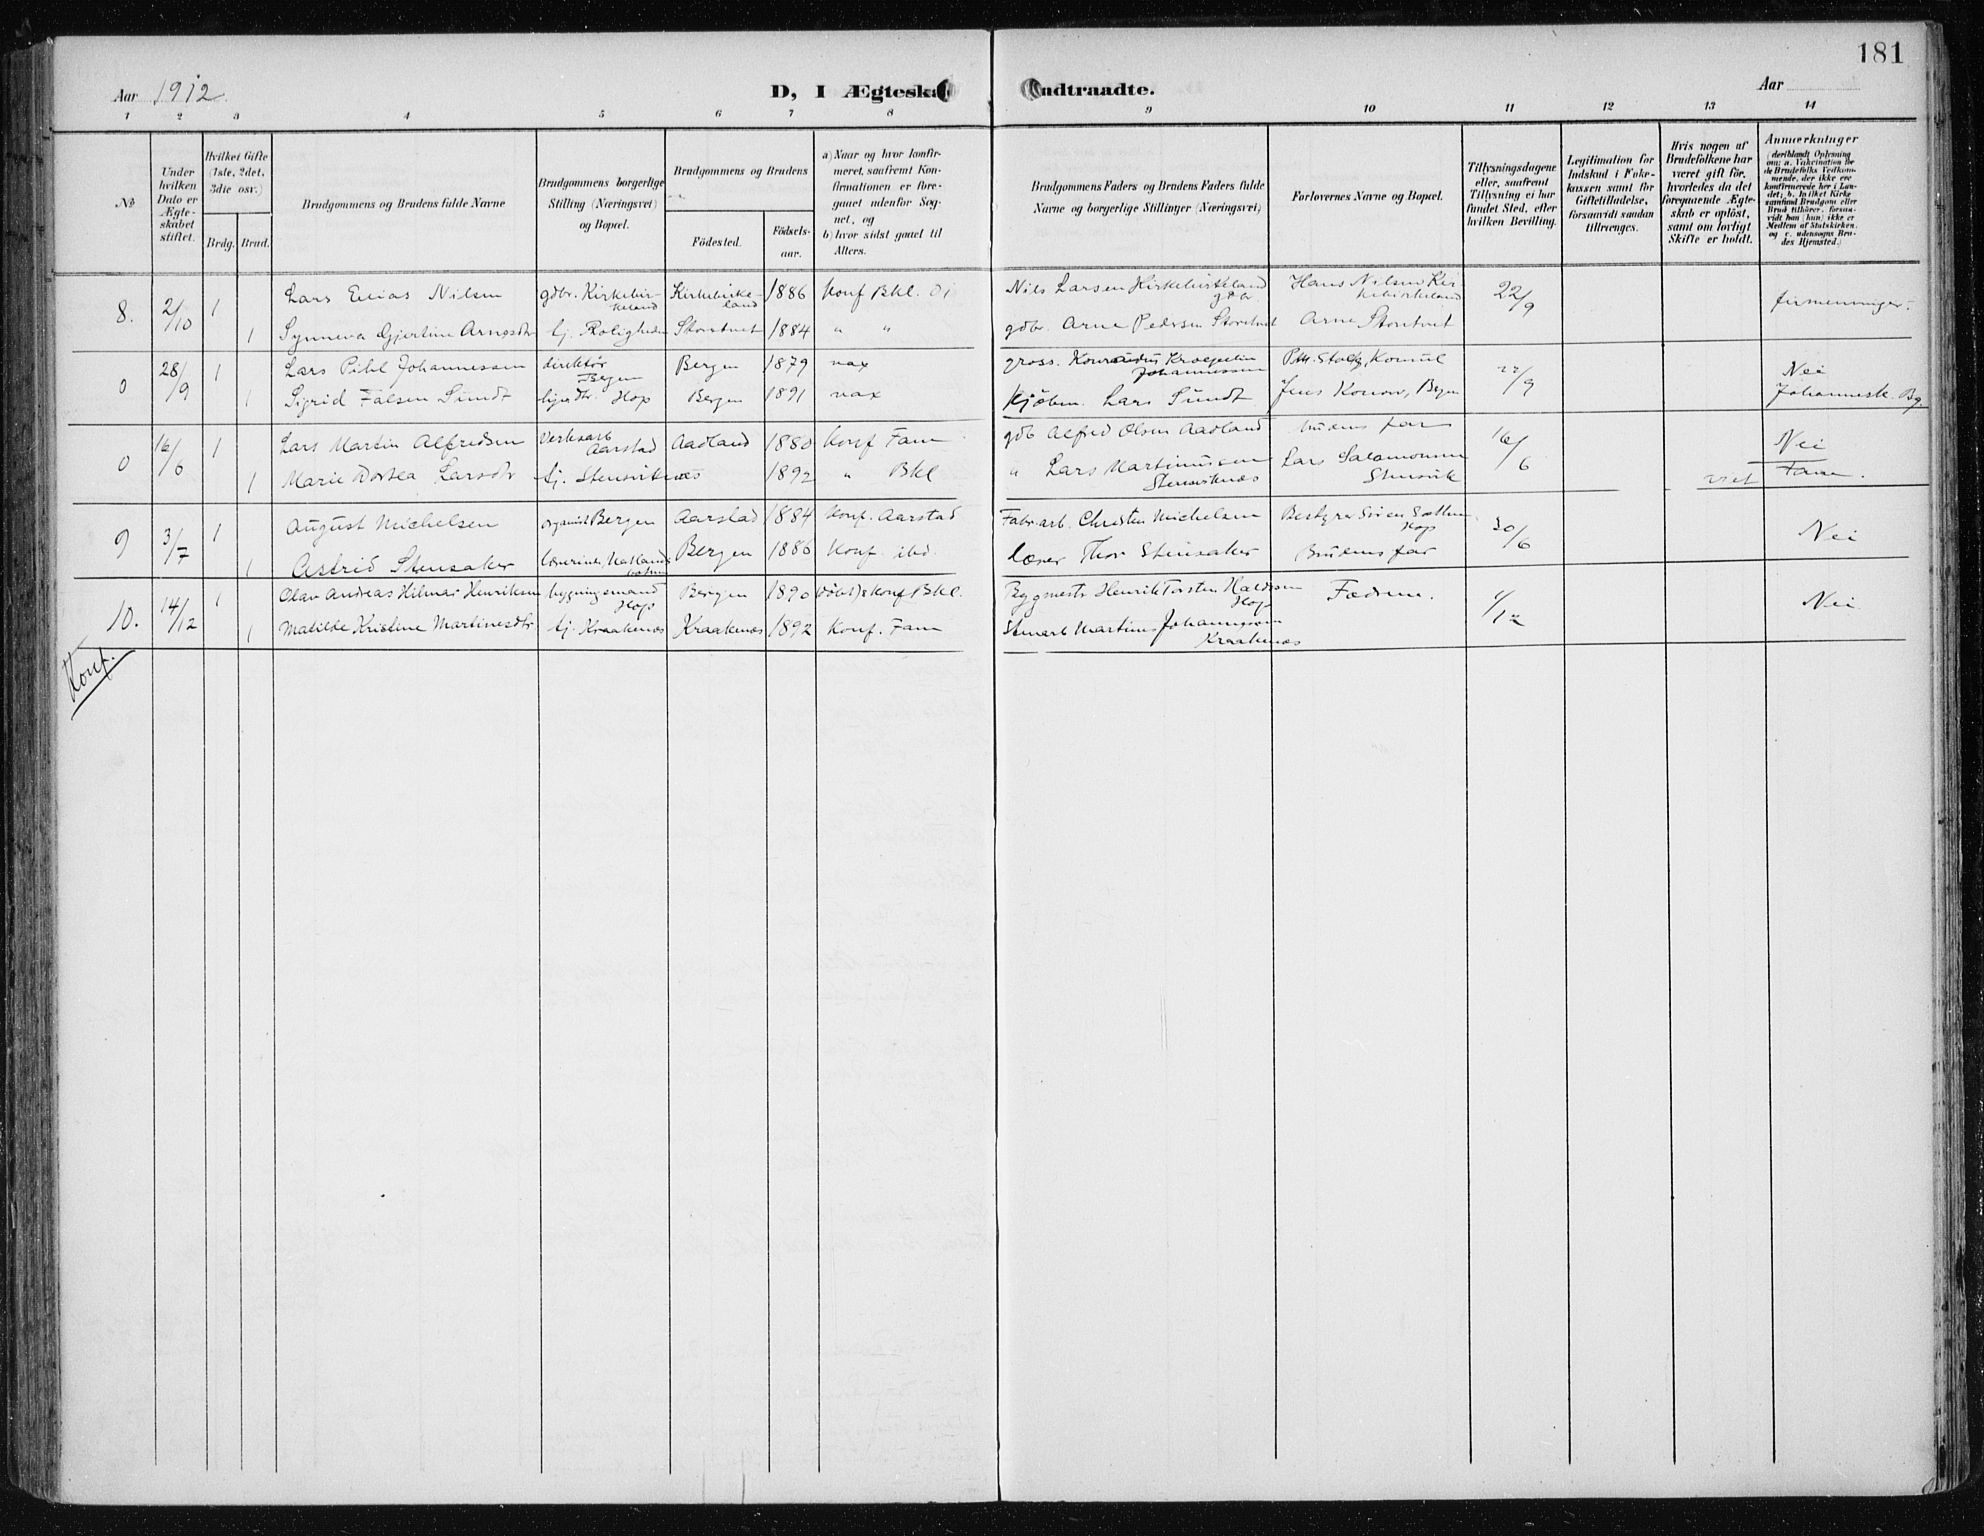 181
Aar 1912.
D, I Ægteska
ndtraadte.
Aar
1 2 3 4 5 6 7 8 9 10 11 12 13 14
№
Under
hvilken
Dato er
Ægte-
skabet
stiftet.
Hvilket Gifte
(1ste, 2det,
3die osv.)
Brdg. Brud.
Brudgommens og Brudens fulde Navne
Brudgommens borgerlige
Stilling (Næringsvei)
og Bopæl.
Brudgommens og Brudens
Fødested.
Fødsels-
aar.
a) Naar og hvor konfir-
meret, saafremt Kon-
firmationen er fore-
gaaet udenfor Sog-
net, og
b) hvor sidst gaaet til
Alters.
Brudgommens Faders og Brudens Faders fulde
Navne og borgerlige Stillinger (Næringsvei)
Forlovernes Navne og Bopæl.
Tillysningsdagene
eller, saafremt
Tillysning ei har
fundet Sted, efter
hvilken Bevilling.
Legitimation for
Indskud i Enke-
kassen samt for
Giftetilladelse,
forsaavidt saadan
tiltrænges.
Hvis nogen af
Brudefolkene har
været gift før,
hvorledes da det
foregaaende Ægte-
skab er opløst,
samt om lovligt
Skifte er holdt.
Anmerkninger
(deriblandt Oplysning
om: a. Vakcination for
de Brudefolks Vedkom-
mende, der ikke ere
konfirmerede her i Lan-
det; b. hvilket Kirke-
samfund Brudgom eller
Brud tilhører, forsaa-
vidt han (hun) ikke er
Medlem af Statskirken,
og c. udensogns Bru-
des Hjemsted.)
8. 2/10 1 Lars Elias Nilsen gdbr. Kirkebir-
keland Kirkebirke-
land 1886 Konf Bkl. Nils Larsen Kirkebirkeland
gdbr. Hans Nilsen Kir-
kebirkeland 22/9
1 Synneva Gjertine Arnesdtr tj. Roligheden Storetvet 1884 " " gdbr. Arne Pedersen Storetvet Arne Storetvet
0 28/9 1 Lars Pihl Johannessen direktør
Bergen Bergen 1879 vax gross. Konradus Kroepelin
Johannessen Konsul 22/9 Nei
1 Sigrid Falsen Sundt Hop Bergen 1891 vax Kjøbm. Lars Sundt Jens Konow, Bergen Johannesk. Bg.
0 16/6 1 Lars Martin Alfredsen Verksarb
Aarstad Aadland 1880 Konf Fane gdb Alfred Olsen Aadland brudens far 16/6 Nei
1 Marie Dortea Larsdtr tj. Stensviknæs 1892 " Bkl " Lars Martinussen
Stensviknæs Lars Salamonsen
Stensvik viet Fane.
9 3/7 1 August Michelsen organist Bergen Aarstad 1884 Konf. Aarstad Fabr.arb. Christen Michelsen Bestyrer Søren Sætten
Hop 30/6 Nei
1 Astrid Stensaker lærerinde Bergen 1886 Konf. ibd. lærer Thor Stensaker Brudens far
10. 14/12 1 Olav Andreas Hilmar Henriksen bygningsmand
Hop Bergen 1890 døbt & konf Bkl. Bygmestr Henrik Torsten
Hop Fædrene. 1/12 Nei
1 Matilde Kristine Martinesdtr tj. Kraakenæs Kraakenæs 1892 Konf. Fane Stenarb Martinus Johannessen
Kraakenæs
Konf.